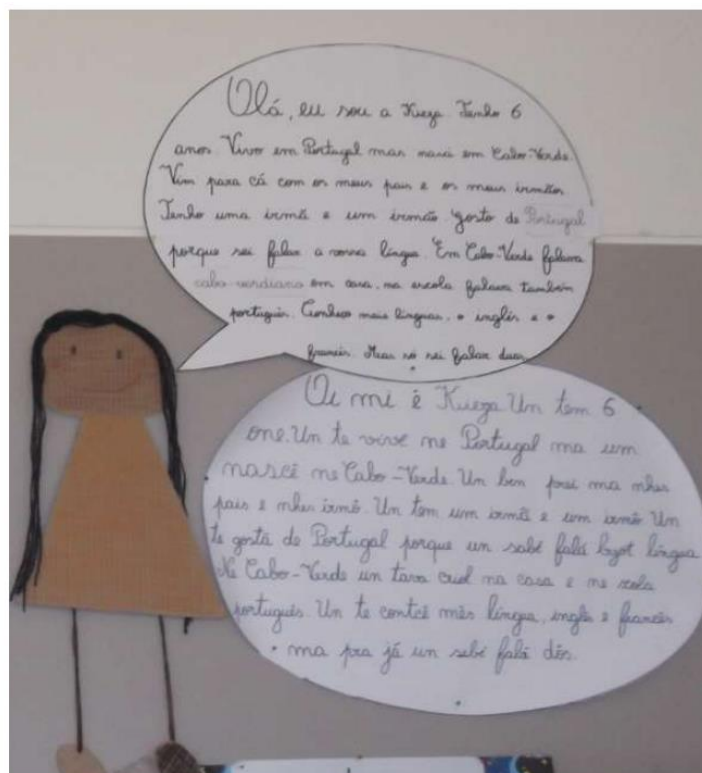 Olá, eu sou a Kieza. Tenho 6
anos. Vivo em Portugal mas nasci em Cabo-Verde.
Vim para cá com os meus pais e os meus irmãos.
Tenho uma irmã e um irmão. gosto de Portugal
porque sei falar a vossa língua. Em Cabo-Verde falava
cabo-verdiano em casa, na escola falava também
português. Conheço mais línguas, o inglês e o
francês. Mas só sei falar duas.
Oi mi é Kieza. Un tem 6
one. Un te vivê ne Portugal ma um
nascê ne Cabo-Verde. Un ben prei ma nhes
pais e nhes irmõ. Un tem um irmã e um irmõ Un
te gostá de Portugal porque un sabê falá bzot língua
Ne Cabo-Verde un tava criol na casa e ne scola
português. Un te contcê mês língua, inglês e francês
ma pra já un sabê falá dôs.